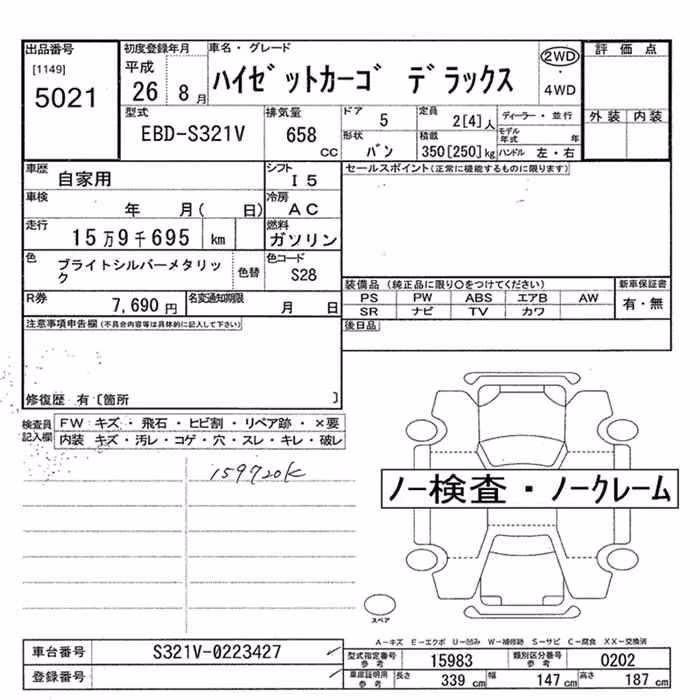 出品番号
[1149]
5021
初度登録年月
平成
26 8月
車名・グレード
ハイゼットカーゴ デラックス
2WD
・
4WD
評価点
外装 内装
型式
EBD-S321V
排気量
658
cc
ドア
5
定員
2[4]人
ディーラー・並行
モデル年式 年
形状
バン
積載
350[250]kg
ハンドル 左・右
車歴
自家用
シフト
I 5
セールスポイント(正常に機能するものに限ります)
車検
年 月( 日)
冷房
AC
走行
15万9千695 km
燃料
ガソリン
色
ブライトシルバーメタリック
色替
色コード
S28
R券
7,690円
名変通知期限
月 日
装備品 (純正品に限り○をつけてください)
新車保証書
PS PW ABS エアB AW
有・無
SR ナビ TV カワ
後日品
注意事項申告欄(不具合内容等は具体的に記入して下さい)
修復歴 有〔箇所 〕
検査員記入欄
FW キズ・飛石・ヒビ割・リペア跡・×要
内装 キズ・汚レ・コゲ・穴・スレ・キレ・破レ
159720K
ノー検査・ノークレーム
スペア
A-キズ E-エクボ U-凹み W-補修跡 S-サビ C-腐食 XX-交換済
車台番号
S321V-0223427
登録番号
型式指定番号
参考
15983
類別区分番号
参考
0202
車庫証明用
参考
長さ 339 cm
幅 147 cm
高さ 187 cm